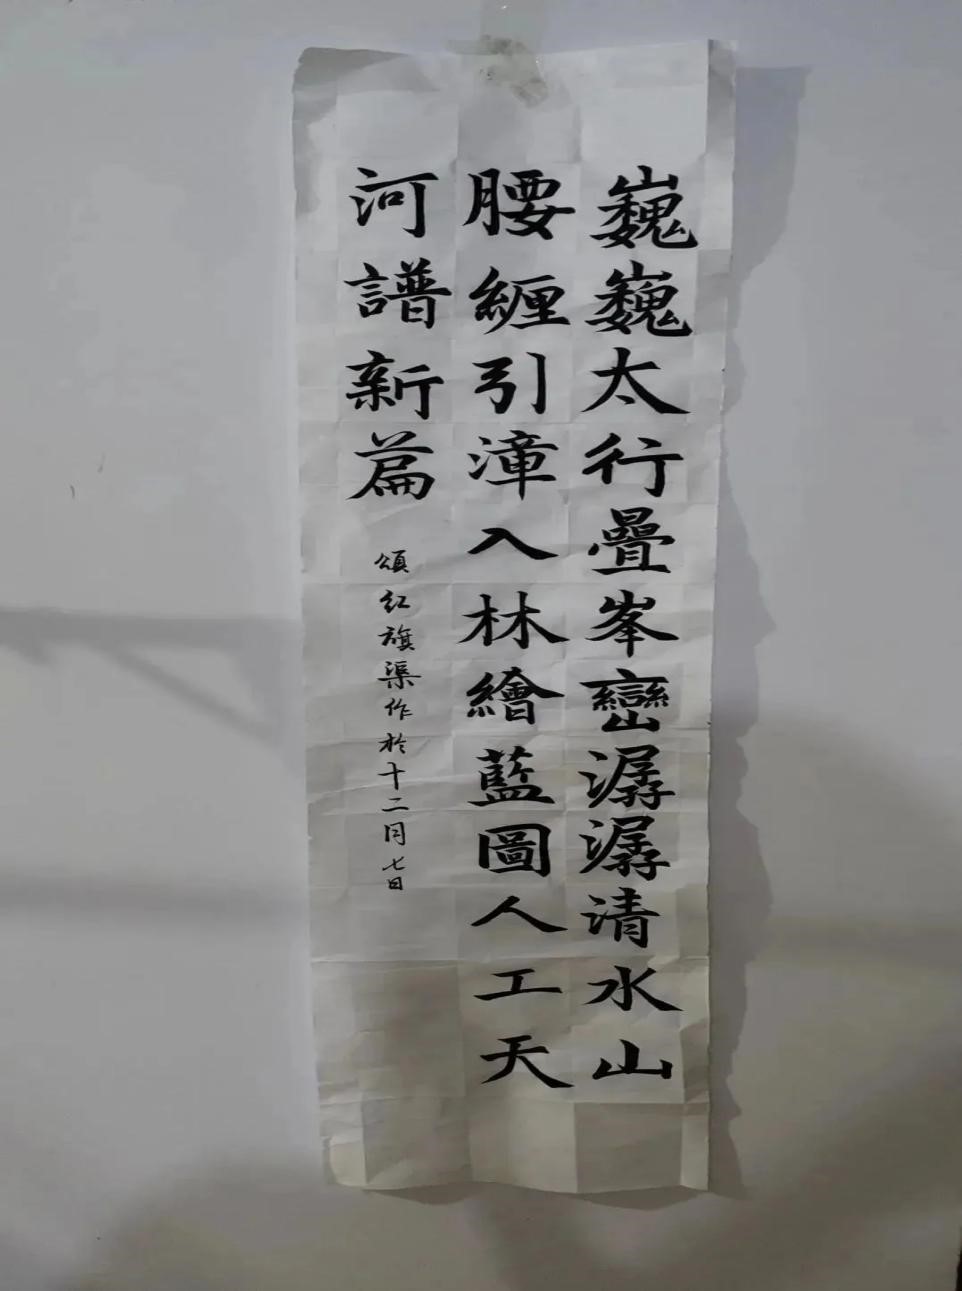 巍巍太行疊峯巒潺潺清水山
腰缠引漳入林繪藍圖人工天
河譜新篇
頌紅旗渠作於十二月七日